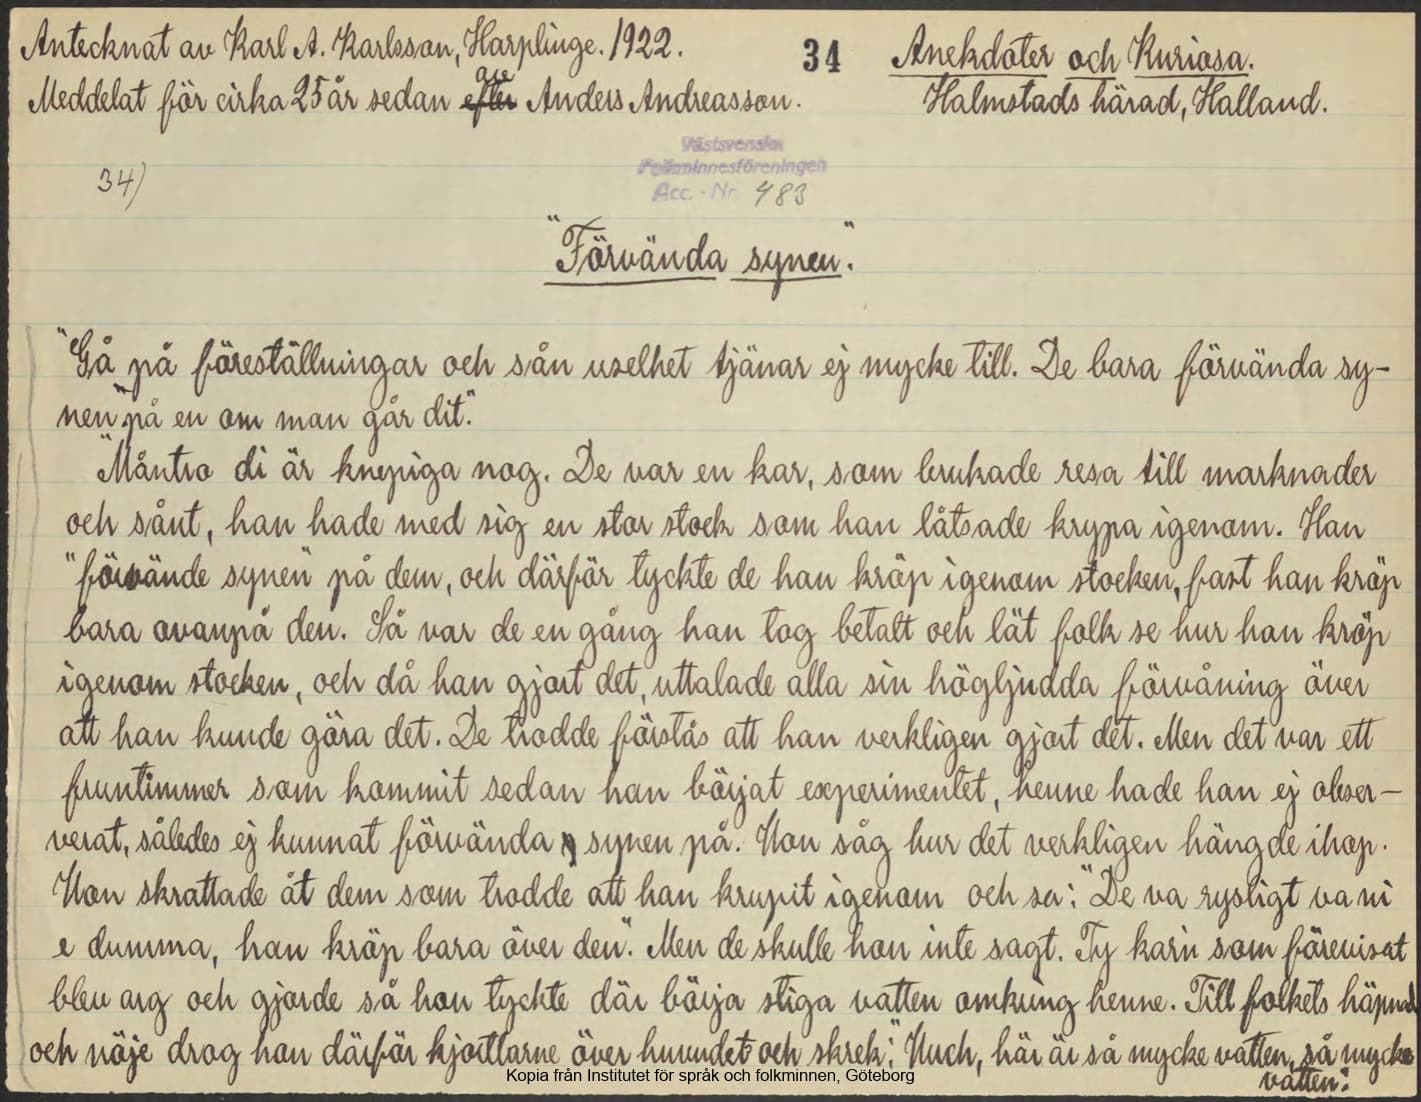 Antecknat av Karl A. Karlsson, Harplinge. 1922.
34
Anekdoter och Kuriosa.
Meddelat för cirka 25 år sedan efter av Anders Andreasson.
Halmstads härad, Halland.
Västsvenska
Folkminnesföreningen
Acc.-Nr. 483
34)
"Förvända synen".
"Gå på föreställningar och sån uselhet tjänar ej mycke till. De bara förvända sy-
nen" på en om man går dit."
"Måntro di är knepiga nog. De var en kar, som brukade resa till marknader
och sånt, han hade med sig en stor stock som han låtsade krypa igenom. Han
"förvände synen" på dem, och därför tyckte de han kröp igenom stocken, fast han kröp
bara ovanpå den. Så var de en gång han tog betalt och lät folk se hur han kröp
igenom stocken, och då han gjort det, uttalade alla sin högljudda förvåning över
att han kunde göra det. De trodde förstås att han verkligen gjort det. Men det var ett
fruntimmer som kommit sedan han börjat experimentet, henne hade han ej obser-
verat, således ej kunnat förvända synen på. Hon såg hur det verkligen hängde ihop.
Hon skrattade åt dem som trodde att han krupit igenom och sa: "De va rysligt va ni
e dumma, han kröp bara över den". Men de skulle hon inte sagt. Ty karn som förevisat
blev arg och gjorde så hon tyckte där börja stiga vatten omkring henne. Till folkets häpnad
och nöje drog hon därför kjortlarne över huvudet och skrek: "Huch, här är så mycke vatten, så mycke
vatten."
Kopia från Institutet för språk och folkminnen, Göteborg